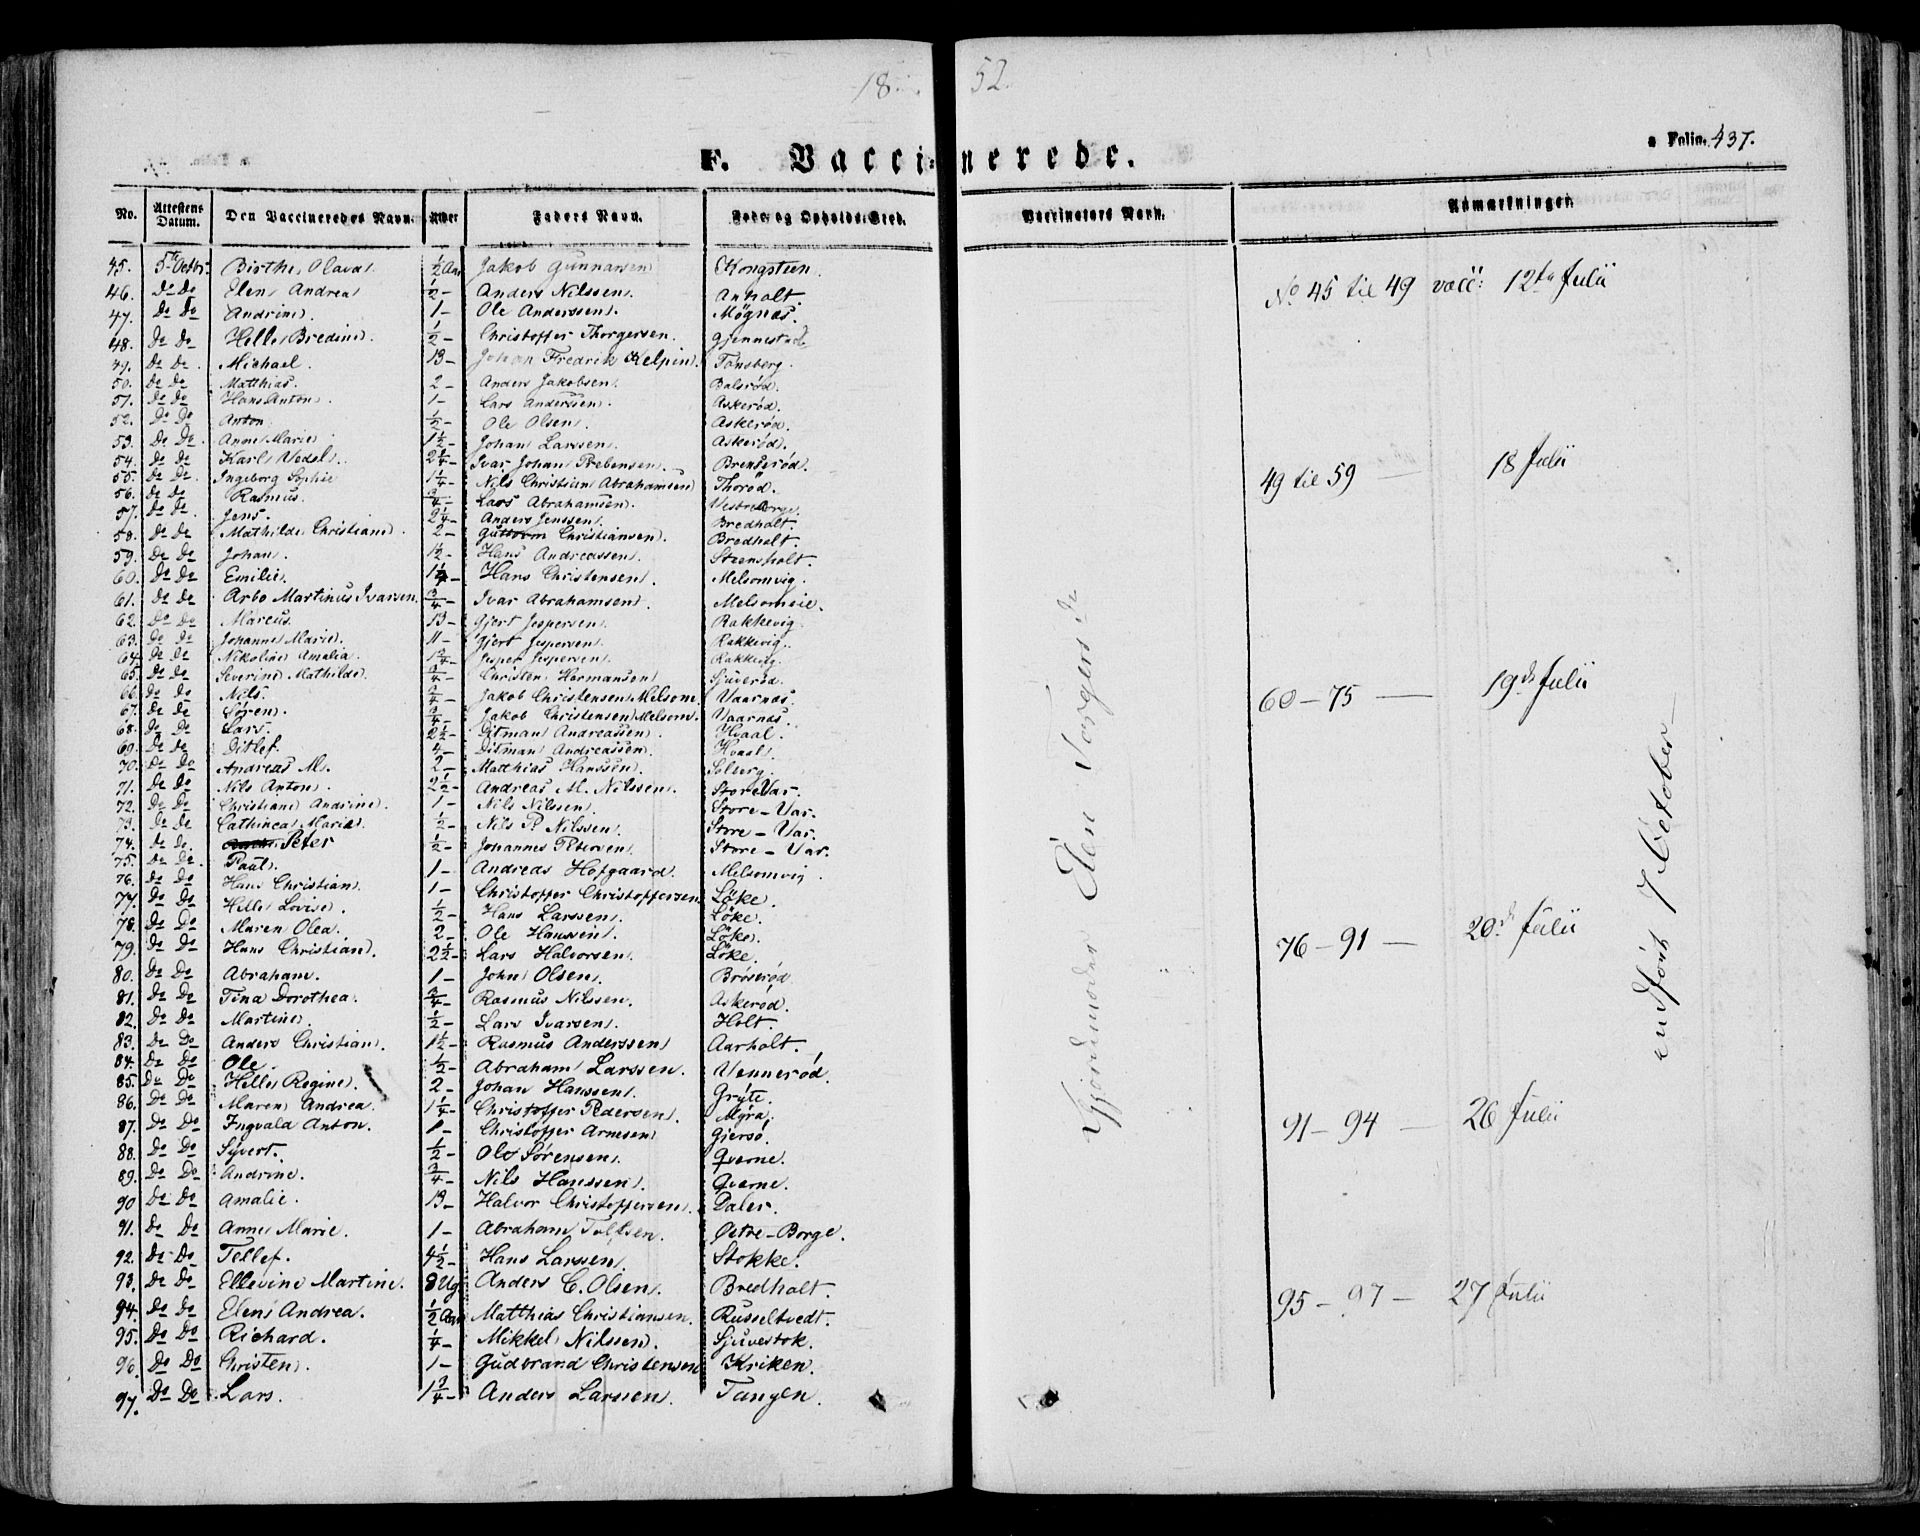 18 52.
F. Vaccinerede.
Folio. 437.
No. Attestens Datum. Den Vaccineredes Navn. Alder Faders Navn. Føde- og Opholds-Sted. Vaccinators Navn. Anmærkninger.
45. 5te Octbr. Birthe Olava. 1/2 Aar Jakob Gunnarsen Kongsteen.
46. Do Do Elen Andrea 1/2 - Anders Nilssen. Anholt.
47. Do Do Andrine. 1 - Ole Anderssen. Mögnæs.
48. Do Do Helle Bredine. 1/2 - Christoffer Thorgersen. Gjennestade
49. Do Do Michael. 13 - Johan Fredrik Kelpin. Tønsberg.
50. Do Do Matthias. 2 - Anders Jakobsen. Balsrød.
51. Do Do Hans Anton. 1 - Lars Anderssen. Askerød.
52. Do Do Anton 1/2 - Ole Olsen. Askerød.
53. Do Do Anne Marie 1 1/2 - Johan Larssen. Askerød.
54. Do Do Karl Vedel. 2 1/4 - Ivar Johan Prebensen. Brenserød.
55. Do Do Ingeborg Sophie 1 1/4 - Nils Christian Abrahamsen Thorød.
56. Do Do Rasmus. 3/4 - Lars Abrahamsen. Vestre Borge.
57. Do Do Jens. 2 1/4 - Anders Jenssen. Bredholt.
58. Do Do Mathilde Christiane. 2 - Guttorm Christiansen. Bredholt.
59. Do Do Johan. 1 1/2 - Hans Andreassen. Steensholt.
60. Do Do Emilie. 1 1/4 - Hans Christensen. Melsomvig.
61. Do Do Arbo Martinus Ivarsen. 3/4 - Ivar Abrahamsen. Melsomeie.
62. Do Do Marcus. 13 - Gjert Jespersen. Rakkevig.
63. Do Do Johanne Marie. 11 - Gjert Jespersen. Rakkevig.
64. Do Do Nikoline Amalia. 1 3/4 - Jesper Jespersen. Rakkevig.
65. Do Do Severine Mathilde. 3/4 - Christen Hermansen. Sjuerød.
66. Do Do Nils. 3/4 - Jakob Christensen Melsom. Vaarnæs.
67. Do Do Søren. 3/4 - Jakob Christensen Melsom. Vaarnæs.
68. Do Do Lars. 2 1/2 - Ditman Andreassen. Hvaal.
69. Do Do Ditlef. 4 - Ditman Andreassen. Hvaal.
70. Do Do Andreas M. 2 - Matthias Hanssen. Solberg.
71. Do Do Nils Anton. 2 1/2 - Andreas M. Nilssen. Store Var.
72. Do Do Christiane Andrine. 1 - Nils Nilssen. Store - Var.
73. Do Do Cathinca Maria. 1/2 - Nils P. Nilssen. Store - Var.
74. Do Do Peter 1/2 - Johannes Petersen. Store - Var.
75. Do Do Paul. 1 - Andreas Hofgaard. Melsomvig.
76. Do Do Hans Christian. 1 - Christoffer Christoffersen. Löke.
77. Do Do Helle Lovise. 1/2 - Hans Larssen. Löke.
78. Do Do Maren Olea. 2 - Ole Hanssen. Löke.
79. Do Do Hans Christian. 2 1/2 - Lars Halvorsen. Löke.
80. Do Do Abraham. 1 - John Olsen. Bröserød.
81. Do Do Tina Dorothea. 3/4 - Rasmus Nilssen. Askerød.
82. Do Do Martine. 1/2 - Lars Ivarsen. Holt.
83. Do Do Anders Christian. 1 1/2 - Rasmus Anderssen Aarholt.
84. Do Do Ole. 1/2 - Abraham Larssen. Vennerød.
85. Do Do Helle Regine. 2 - Johan Hanssen. Gryte.
86. Do Do Maren Andrea. 1 1/4 - Christoffer Pedersen. Myra.
87. Do Do Ingvald Anton. 1 - Christoffer Arnesen Gjersø.
88. Do Do Syvert. 1/2 - Ole Sørensen. Qverne.
89. Do Do Andrine. 3/4 - Nils Hanssen. Qverne.
90 Do Do Amalie. 13 - Halvor Christoffersen. Daler.
91. Do Do Anne Marie. 1 - Abraham Tollfsen. Østre - Borge.
92. Do Do Tellef. 4 1/2 - Hans Larssen. Stokke.
93. Do Do Ellevine Martine. 8 Ug. Anders C. Olsen. Bredholt.
94. Do Do Elen Andrea. 1/2 Aar Matthias Christiansen. Russeltvedt.
95. Do Do Richard. 1/4 - Mikkel Nilssen. Sjuvestok.
96. Do Do Christen. 1 - Gudbrand Christensen Kriken.
97. Do Do Lars. 1 3/4 - Anders Larssen. Tangen.
Gjordemoder Elen Torgersd.
No 45 til 49 vacc: 12te Julii
49 til 59 — 18 Julii
60 - 75 — 19de Julii
76 - 91 — 20de Julii
91 - 94 — 26 Julii
95 - 97 - 27 Julii
indført 7 October